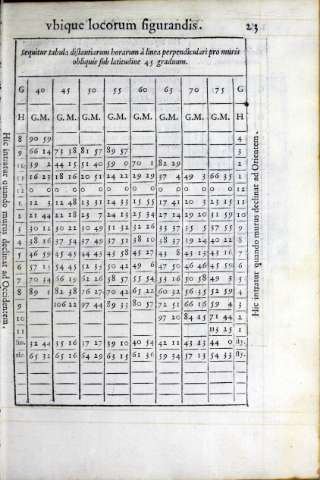 vbique locorum figurandis. 23
Sequitur tabula distantiarum horarum à linea perpendiculari pro muris
obliquis sub latitudine 45 graduum.
G 40 45 50 55 60 65 70 75 G
H G.M. G.M. G.M. G.M. G.M. G.M. G.M. G.M. H
8 90 59 4
9 66 14 73 58 81 57 89 57 3
10 39 2 44 15 51 40 59 0 70 1 82 29 2
11 16 23 18 16 20 51 24 22 29 29 37 4 49 3 66 35 1
12 0 0 0 0 0 0 0 0 0 0 0 0 0 0 0 0 12
1 12 3 12 48 13 31 14 33 15 55 17 41 20 3 23 15 11
2 21 44 22 18 23 7 24 13 25 34 27 14 29 20 31 59 10
3 30 14 30 22 30 49 31 32 32 26 33 37 35 5 37 55 9
4 38 16 37 54 37 49 37 51 38 10 38 37 39 24 40 22 8
5 46 59 45 45 44 43 43 58 43 27 43 8 43 13 43 16 7
6 57 13 54 45 52 33 50 42 49 6 47 50 46 46 45 59 6
7 70 34 66 19 62 26 58 57 55 54 53 16 50 58 49 3 5
8 89 1 82 38 76 27 70 42 65 22 60 32 56 35 52 59 4
9 106 22 97 44 89 33 80 57 72 51 66 16 59 4 3
10 97 20 84 15 71 44 2
11 113 25 1
32 44 35 16 37 27 39 10 40 54 42 11 43 23 44 0
65 32 65 16 64 29 63 15 61 36 59 34 57 13 54 33
Hic intratur quando murus declinat ad Occidentem.
Hic intratur quando murus declinat ad Orientem.